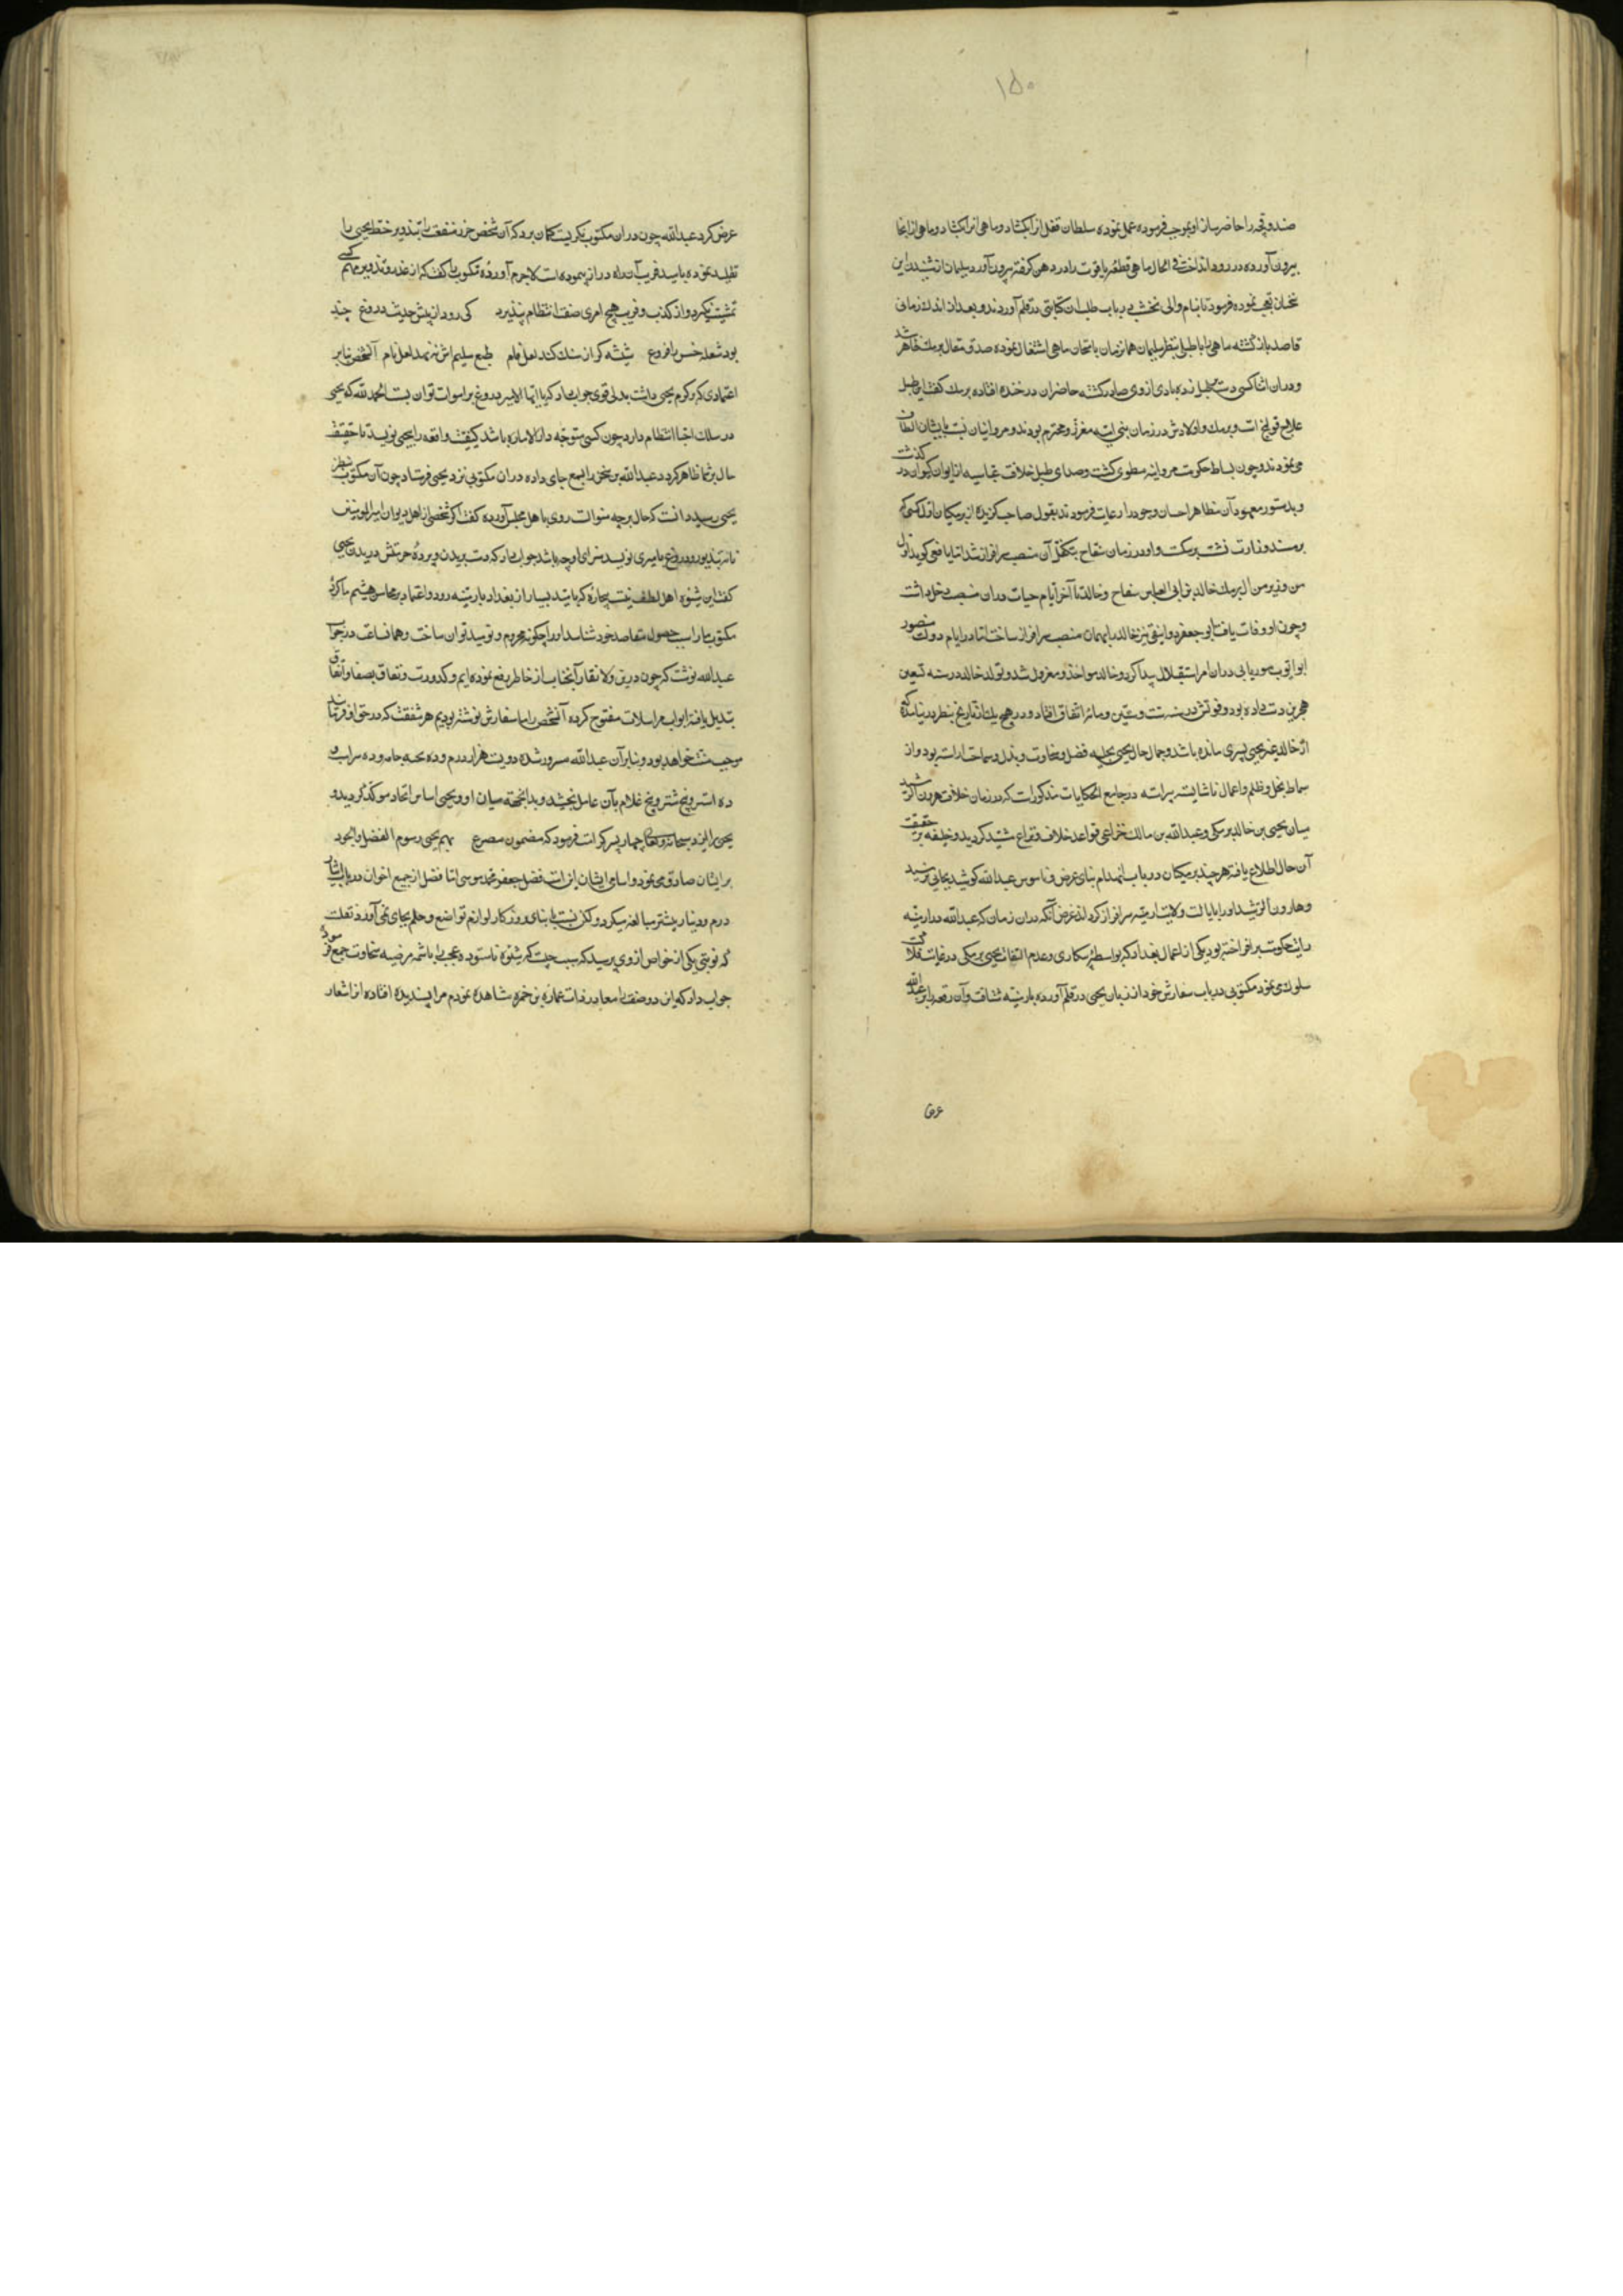 ۱۵۰
صندوقچه را حاضر ساز او بموجب فرموده عمل نموده سلطان قفل از آن بکشاد و ماهی از آنجا
بیرون آورده در رود انداخت فی الحال ماهی قطعه یاقوت را در دهن گرفته بیرون آورد سلیمان از شنیدن این
سخنان تعجب نموده فرمود تا بنام والی نخشب در باب طلب آن کتابتی در قلم آوردند و بعد از اندک زمانی
قاصد بازگشته ماهی را با طبل بنظر سلیمان همان زمان بامتحان ماهی اشتغال نموده صدق مقال برمک ظاهر شد
و در آن اثنا کسی دست بطبل زده بادی از وی صادر گشته حاضران در خنده افتاده برمک گفت این طبل
علاج قولنج است و برمک و اولادش در زمان بنی امیه معزز و محترم بودند و مروانیان نسبت بایشان الطاف
می نمودند و چون بساط حکومت مروانیه مطوی گشت و صدای طبل خلافت عباسیه از ایوان کیوان در گذشت
و بدستور معهود آن مظاهر احسان وجود را رعایت فرمودند بقول صاحب گزیده از برمکیان اول کسی که
بر مسند وزارت نشست برمکست و او در زمان سفاح بتکفل آن منصب سرافراز شد اما یافعی گوید اول
من وزیر من آل برمک خالد بن ابی العباس سفاح و خالد تا آخر ایام حیات در آن منصب دخل داشت
و چون او وفات یافت ابو جعفر دوانیقی نیز خالد را بهمان منصب سرافراز ساخت اما در ایام دولت منصور
ابو ایوب موریانی در آن امر استقلال پیدا کرد و خالد مواخذ و معزول شد و تولد خالد در سنه تسعین
هجری دست داده بود و فوتش در سنه ست و ستین و مائه اتفاق افتاد و در هیچ یک از تواریخ بنظر در نیامده که
از خالد غیر یحیی پسری مانده باشد و جمال حال یحیی بحلیه فضل و سخاوت و بذل و سماحت آراسته بود و از
سماط بخل و ظلم و اعمال ناشایسته پیراسته در جامع الحکایات مذکورات که در زمان خلافت هرون الرشید
میان یحیی بن خالد برمکی و عبدالله بن مالک خزاعی قواعد خلاف و نزاع مشید گردید و خلیفه بر حقیقت
آن حال اطلاع یافته هر چند برمکیان در باب انهدام بنای عرض و ناموس عبدالله کوشید بجائی نرسید
و هارون الرشید او را بایالت ولایت ارمنیه سرافراز کرد الغرض آنکه در آن زمان که عبدالله در ارمنیه
رایت حکومت برافراخته بود یکی از اعمال بغداد که بواسطه بیکاری و عدم التفات یحیی برمکی در غایت فلاکت
سلوک می نمود مکتوبی در باب سفارش خود از زبان یحیی در قلم آورده بارمنیه شتافت و آن رقعه را بر عبدالله
عرض کرد عبدالله چون در آن مکتوب نگریست گمان برد که آن شخص خط یحیی را
تقلید نموده بامید فریب آن راه دراز پیموده است لاجرم آورنده مکتوب را گفت که از غدر و تزویر مهم کسی
تمشیت نگیرد و از کذب و فریب هیچ امری صفت انتظام نپذیرد کی رود از پیش حدیث دروغ چند
بود شعله خس را فروغ شیشه گر از سنک کند لعل فام طبع سلیم اش ننهد لعل نام آن شخص بنابر
اعتمادی که بر کرم یحیی داشت بدلی قوی جواب داد که یا ایها الامیر دروغ بر اموات توان بست الحمد لله که یحیی
در سلک احیا انتظام دارد چون کسی متوجه دار الاماره باشد کیفیت واقعه را بیحیی نویسد تا حقیقت
حال بر شما ظاهر گردد عبدالله بن سخن را بسمع جای داده در آن مکتوبی نزد یحیی فرستاد چون آن مکتوب بنظر
یحیی رسید دانست که حال بر چه منوالست روی باهل مجلس آورده گفت اگر شخصی از اهل دیوان امیر المومنین
نامه بتزویر و دروغ بامیری نویسد سزای او چه باشد جواب داد که دست بریدن و پرده حرمتش دریدن یحیی
گفت این شیوه اهل لطف نیست بیچاره که بامید بسیار از بغداد بارمنیه رود و اعتماد بر محاسن شیم ما کرده
مکتوب ما را سبب حصول مقاصد خود شناسد او را چگونه محروم و نومید توان ساخت و همان ساعت در جواب
عبدالله نوشت که چون درین ولا نقار آنجناب از خاطر رفع نموده ایم و کدورت و نفاق بصفا و اتفاق
تبدیل یافته ابواب مراسلات مفتوح کرده آن شخص را ما سفارش نوشته بودیم هر شفقت که در حق او فرمایند
موجب منت خواهد بود و بنابر آن عبدالله مسرور شده دویست هزار درم و ده تخته جامه و ده سر اسب و
ده استر و پنج شتر و پنج غلام بآن عامل بخشید و بدانجهة میان او و یحیی اساس اتحاد موکد گردید و
یحیی را ایزد سبحانه و تعالی چهار پسر کرامت فرمود که مضمون مصرع بهم یحیی رسوم الفضل والجود
بر ایشان صادق می نمود و اسامی ایشان اینست فضل جعفر محمد موسی اما فضل از جمیع اخوان در باب ایثار
درم و دینار بیشتر مبالغه میکرد ولکن نسبت با بنای روزگار لوازم تواضع و حلم بجای نمی آورد نقلست
که نوبتی یکی از خواص از وی پرسید که سبب چیست که شیوه ناستوده عجب را با شیمه مرضیه سخاوت جمع فرموده
جواب داد که این دو صفت را معا در ذات عماره بن حمزه مشاهده نمودم مرا پسندیده افتاده از اشعار